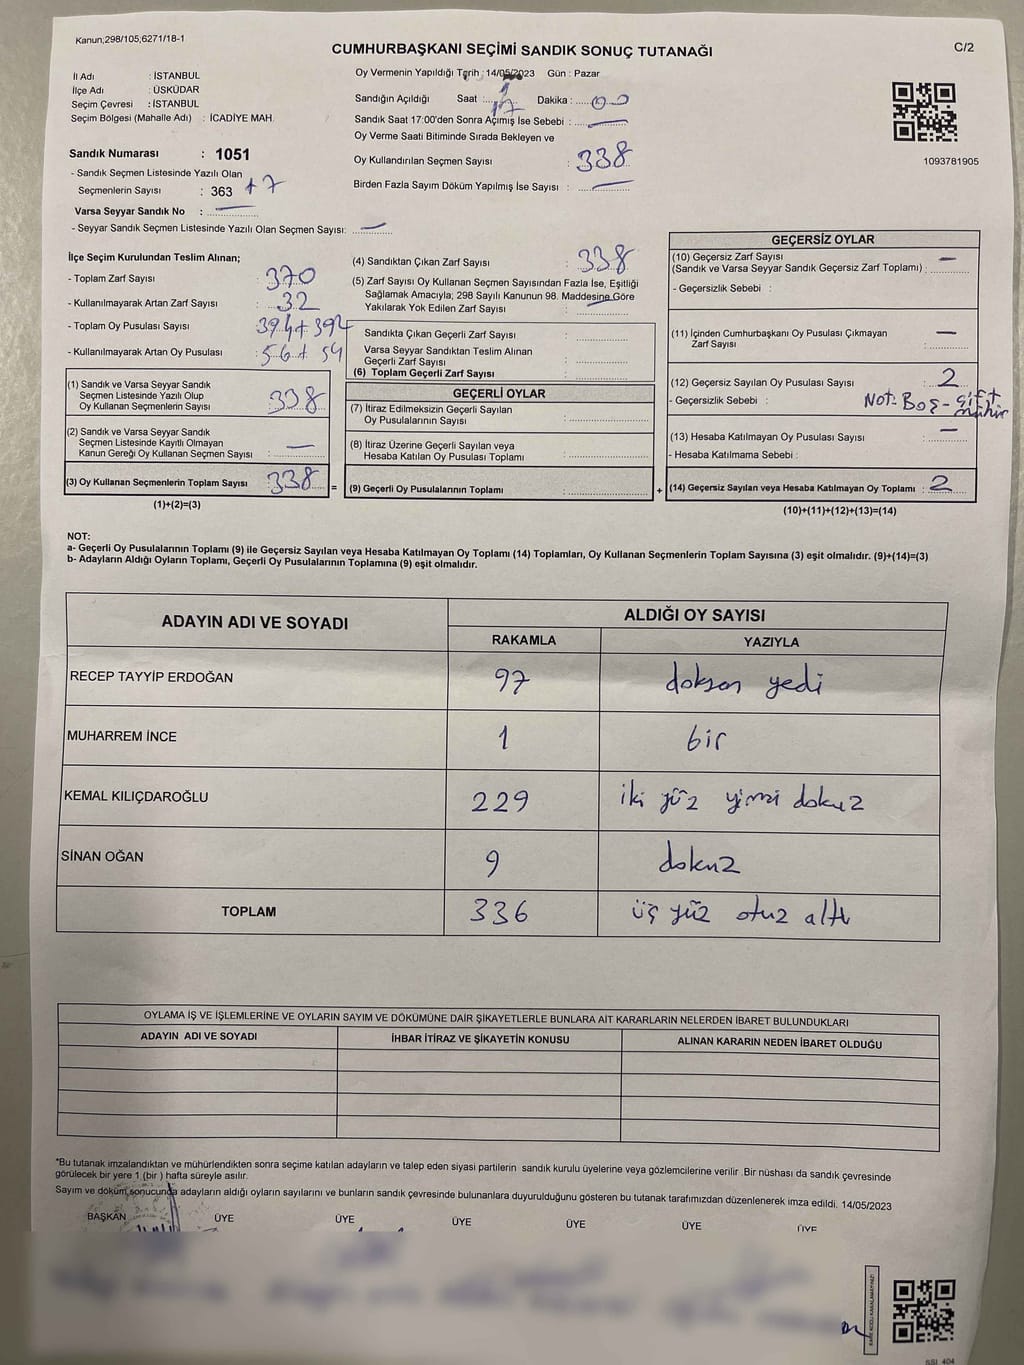 Kanun;298/105;6271/18-1
CUMHURBAŞKANI SEÇİMİ SANDIK SONUÇ TUTANAĞI
C/2
İl Adı : İSTANBUL
İlçe Adı : ÜSKÜDAR
Seçim Çevresi : İSTANBUL
Seçim Bölgesi (Mahalle Adı) : İCADİYE MAH.
Oy Vermenin Yapıldığı Tarih : 14/05/2023 Gün : Pazar
Sandığın Açıldığı Saat : 17 Dakika : 00
Sandık Saat 17:00'den Sonra Açımış İse Sebebi : —
Oy Verme Saati Bitiminde Sırada Bekleyen ve
Oy Kullandırılan Seçmen Sayısı : 338
Birden Fazla Sayım Döküm Yapılmış İse Sayısı : —
1093781905
Sandık Numarası : 1051
- Sandık Seçmen Listesinde Yazılı Olan
Seçmenlerin Sayısı : 363 +7
Varsa Seyyar Sandık No : —
- Seyyar Sandık Seçmen Listesinde Yazılı Olan Seçmen Sayısı: —
İlçe Seçim Kurulundan Teslim Alınan;
- Toplam Zarf Sayısı : 370
- Kullanılmayarak Artan Zarf Sayısı : 32
- Toplam Oy Pusulası Sayısı : 394+394
- Kullanılmayarak Artan Oy Pusulası : 56+
(1) Sandık ve Varsa Seyyar Sandık
Seçmen Listesinde Yazılı Olup
Oy Kullanan Seçmenlerin Sayısı : 338
(2) Sandık ve Varsa Seyyar Sandık
Seçmen Listesinde Kayıtlı Olmayan
Kanun Gereği Oy Kullanan Seçmen Sayısı : —
(3) Oy Kullanan Seçmenlerin Toplam Sayısı : 338 =
(1)+(2)=(3)
(4) Sandıktan Çıkan Zarf Sayısı : 338
(5) Zarf Sayısı Oy Kullanan Seçmen Sayısından Fazla İse, Eşitliği
Sağlamak Amacıyla; 298 Sayılı Kanunun 98. Maddesine Göre
Yakılarak Yok Edilen Zarf Sayısı : —
Sandıkta Çıkan Geçerli Zarf Sayısı :
Varsa Seyyar Sandıktan Teslim Alınan
Geçerli Zarf Sayısı :
(6) Toplam Geçerli Zarf Sayısı :
GEÇERLİ OYLAR
(7) İtiraz Edilmeksizin Geçerli Sayılan
Oy Pusulasının Sayısı :
(8) İtiraz Üzerine Geçerli Sayılan veya
Hesaba Katılan Oy Pusulası Toplamı :
(9) Geçerli Oy Pusulalarının Toplamı : +
GEÇERSİZ OYLAR
(10) Geçersiz Zarf Sayısı —
(Sandık ve Varsa Seyyar Sandık Geçersiz Zarf Toplamı) :
- Geçersizlik Sebebi :
(11) İçinden Cumhurbaşkanı Oy Pusulası Çıkmayan —
Zarf Sayısı :
(12) Geçersiz Sayılan Oy Pusulası Sayısı : 2
- Geçersizlik Sebebi : Not: Boş - çift
mühür
(13) Hesaba Katılmayan Oy Pusulası Sayısı : —
- Hesaba Katılmama Sebebi :
(14) Geçersiz Sayılan veya Hesaba Katılmayan Oy Toplamı : 2
(10)+(11)+(12)+(13)=(14)
NOT:
a- Geçerli Oy Pusulalarının Toplamı (9) ile Geçersiz Sayılan veya Hesaba Katılmayan Oy Toplamı (14) Toplamları, Oy Kullanan Seçmenlerin Toplam Sayısına (3) eşit olmalıdır. (9)+(14)=(3)
b- Adayların Aldığı Oyların Toplamı, Geçerli Oy Pusulalarının Toplamına (9) eşit olmalıdır.
ADAYIN ADI VE SOYADI ALDIĞI OY SAYISI
RAKAMLA YAZIYLA
RECEP TAYYİP ERDOĞAN 97 doksan yedi
MUHARREM İNCE 1 bir
KEMAL KILIÇDAROĞLU 229 iki yüz yirmi dokuz
SİNAN OĞAN 9 dokuz
TOPLAM 336 üç yüz otuz altı
OYLAMA İŞ VE İŞLEMLERİNE VE OYLARIN SAYIM VE DÖKÜMÜNE DAİR ŞİKAYETLERLE BUNLARA AİT KARARLARIN NELERDEN İBARET BULUNDUKLARI
ADAYIN ADI VE SOYADI İHBAR İTİRAZ VE ŞİKAYETİN KONUSU ALINAN KARARIN NEDEN İBARET OLDUĞU
*Bu tutanak imzalandıktan ve mühürlendikten sonra seçime katılan adayların ve talep eden siyasi partilerin sandık kurulu üyelerine veya gözlemcilerine verilir .Bir nüshası da sandık çevresinde
görülecek bir yere 1 (bir ) hafta süreyle asılır.
Sayım ve döküm sonucunda adayların aldığı oyların sayılarını ve bunların sandık çevresinde bulunanlara duyurulduğunu gösteren bu tutanak tarafımızdan düzenlenerek imza edildi. 14/05/2023
BAŞKAN ÜYE ÜYE ÜYE ÜYE ÜYE ÜYE
SSI 404